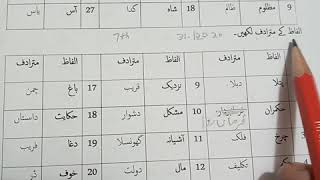 9 مظلوم ظالم 18 شاہ گدا 27 آس یاس
7th 31-12-2020
الفاظ کے مترادف لکھیں۔
الفاظ مترادف الفاظ مترادف الفاظ مترادف
پتلا دبلا 9 نزدیک قریب 17 باغ چمن
حکمران 10 مشکل دشوار 18 حکایت داستاں
چرخ فلک 11 آشیانہ گھونسلا 19 دغا فریب
تکلیف 12 مال دولت 20 خوف ڈر